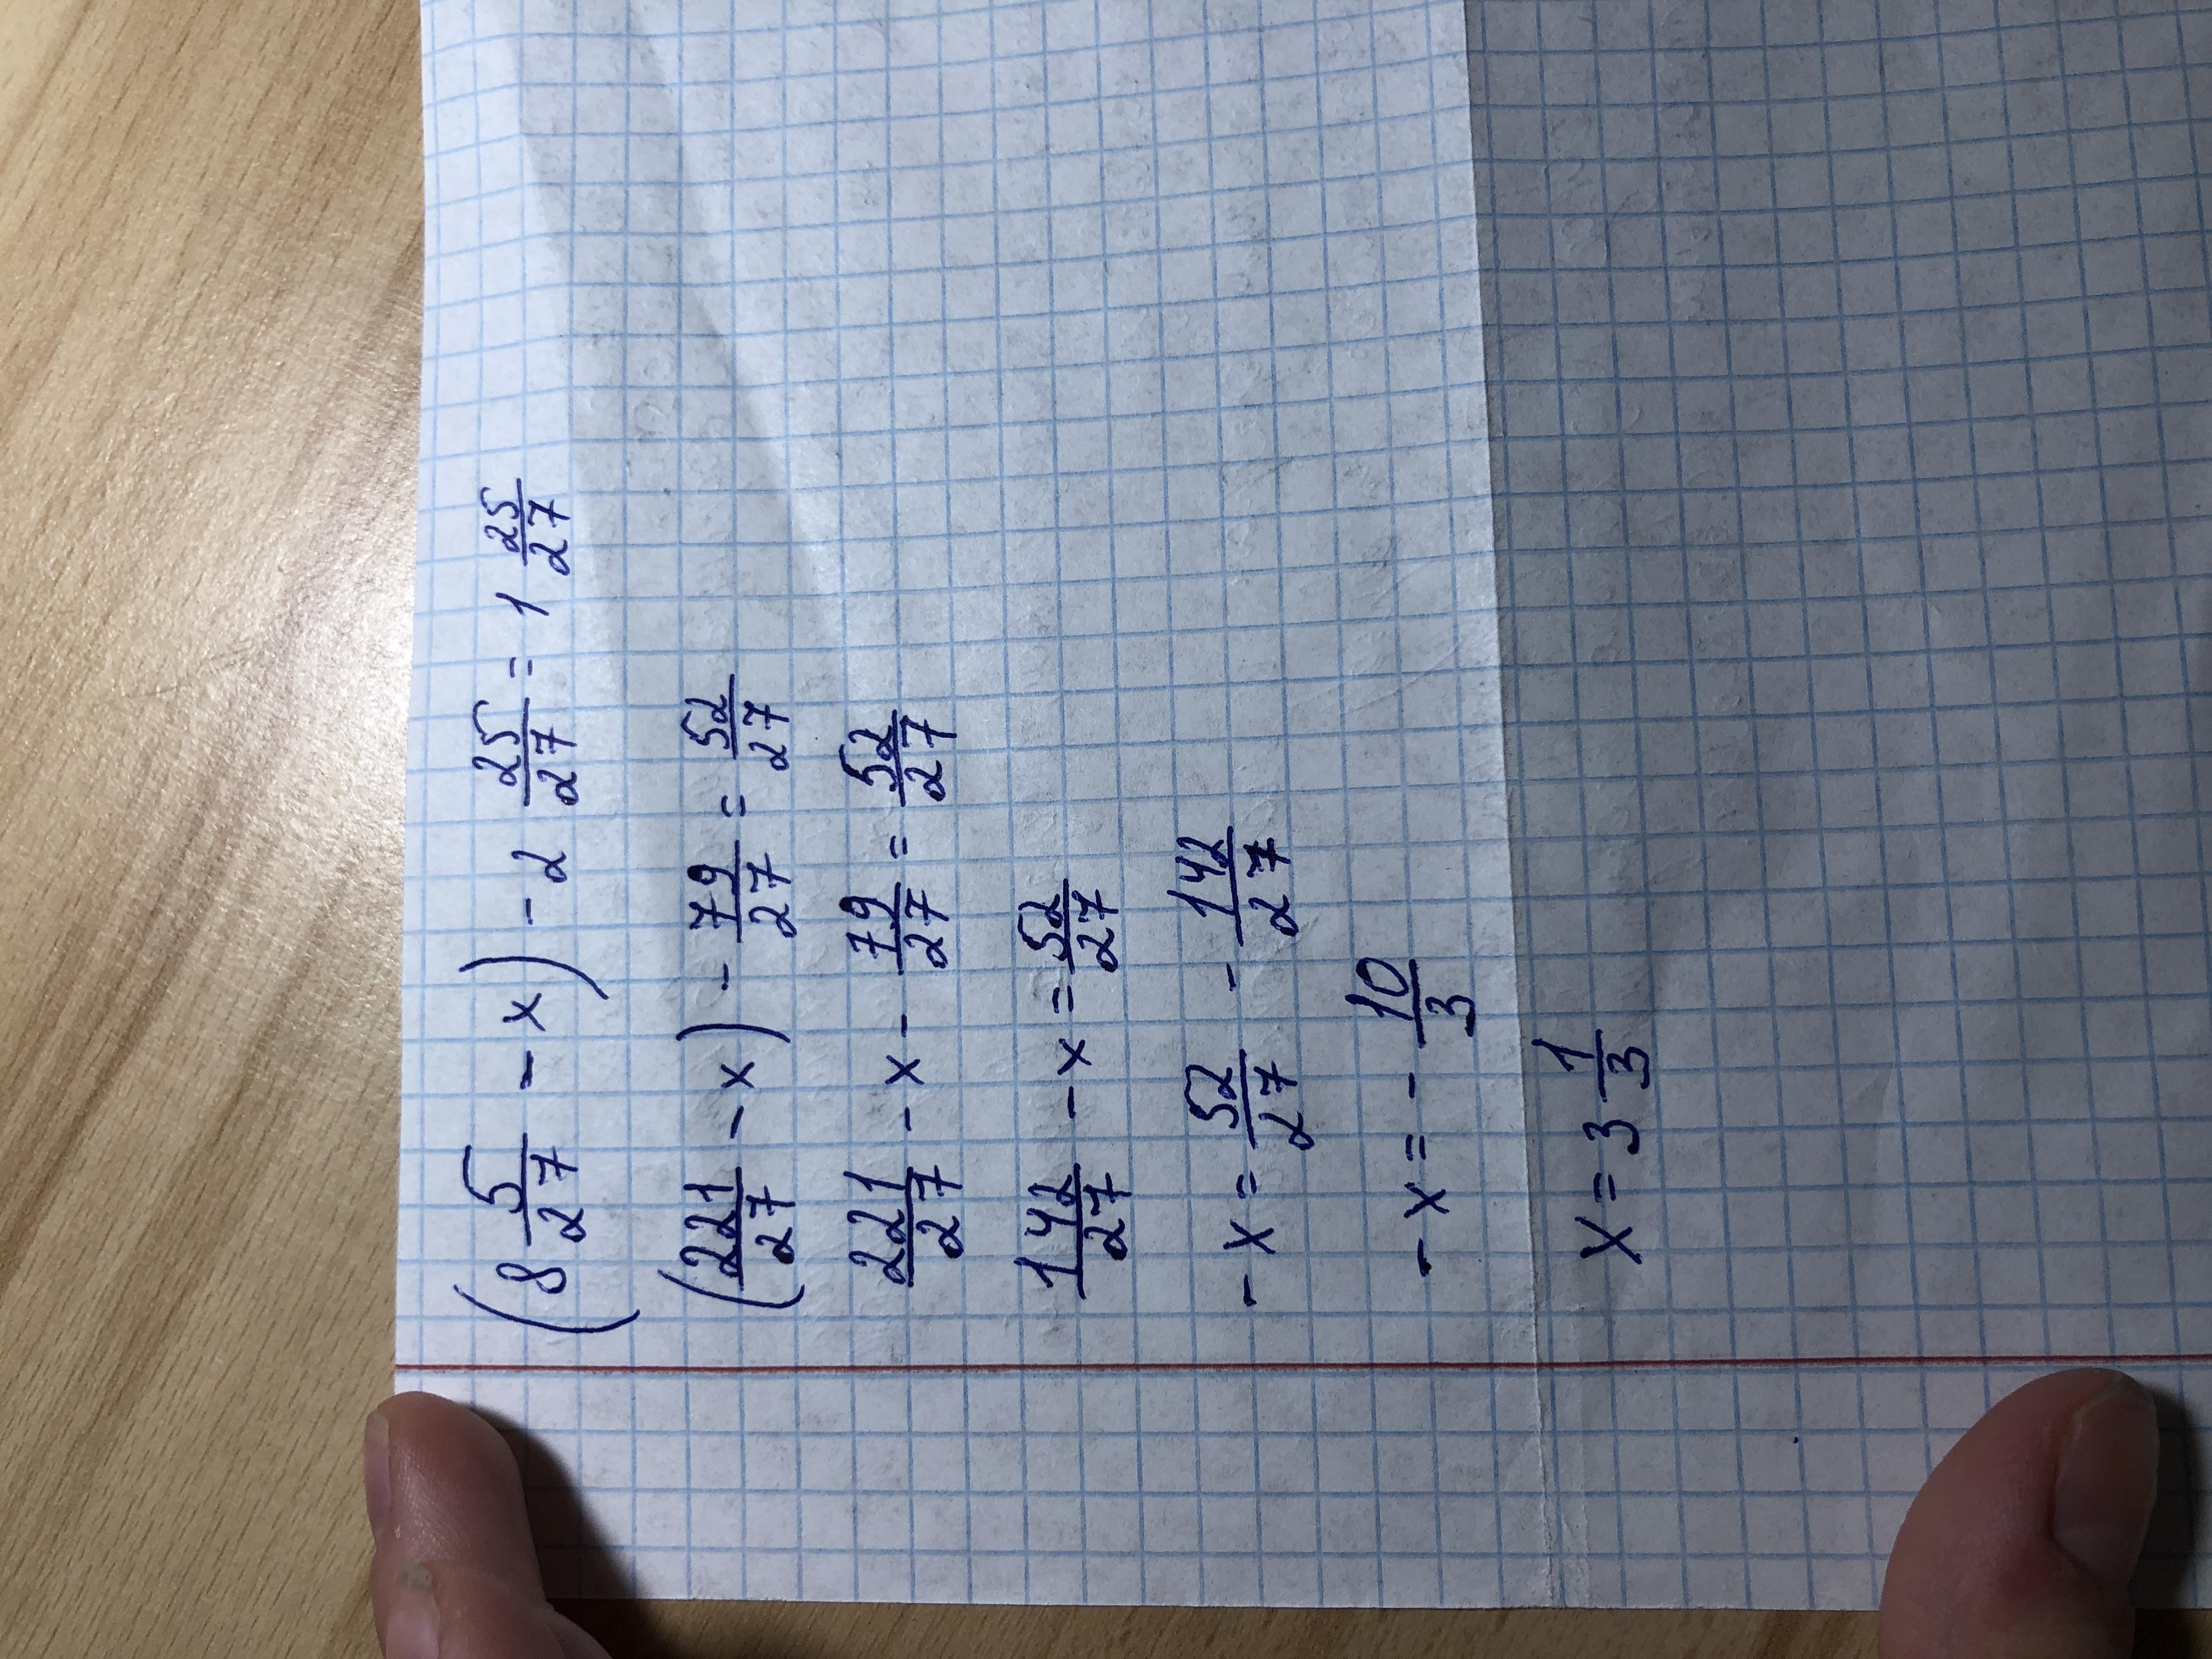 (8 5/27 - x) - 2 25/27 = 1 25/27
(221/27 - x) - 79/27 = 52/27
221/27 - x - 79/27 = 52/27
142/27 - x = 52/27
- x = 52/27 - 142/27
- x = - 10/3
x = 3 1/3